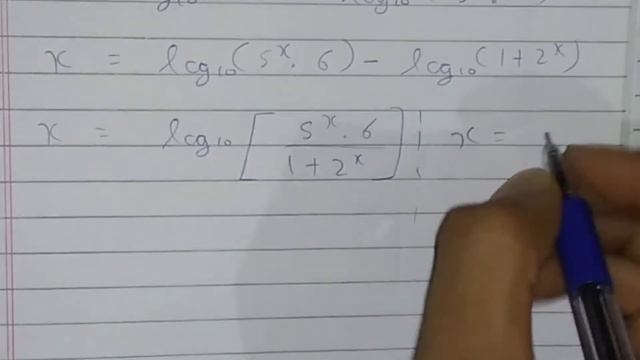 x = log₁₀(5ˣ. 6) - log₁₀(1+2ˣ)
x = log₁₀[5ˣ. 6 / 1+2ˣ] x =